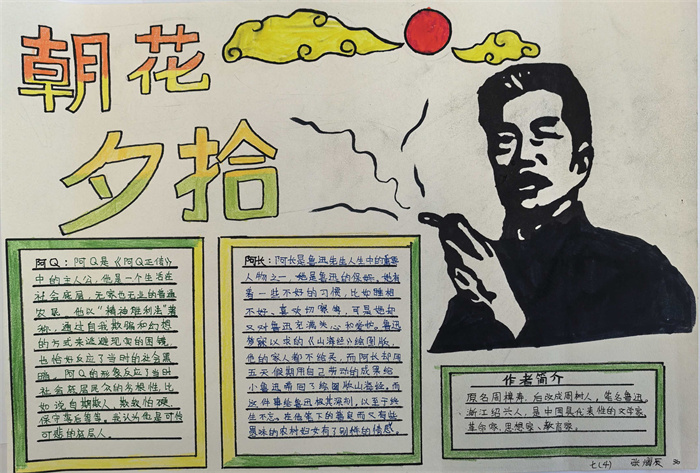 朝花
夕拾
阿Q:阿Q是《阿Q正传》
中的主人公,他是一个生活在
社会底层,无家也无业的普通
农民。他以“精神胜利法”著
称,通过自我欺骗和幻想
的方式来逃避现实的困境,
也恰好反应了当时的社会黑
暗。阿Q的形象反应了当时
社会底层民众的劣根性,比
如说自欺欺人,欺软怕硬,
保守落后等等。我认为他是可怜
可悲的底层人。
阿长:阿长是鲁迅先生人生中的重要
人物之一,她是鲁迅的保姆。她有
着一些不好的习惯,比如睡相
不好,喜欢切切察察,可是她却
又对鲁迅充满关心和爱护。鲁迅
梦寐以求的《山海经》绘图版,
他的家人都不给买,而阿长却用
五天假期用自己劳动的成果给
小鲁迅带回了绘图版山海经,而
这件事给鲁迅极其深刻,以至于终
生不忘。在他笔下的善良而又有些
愚昧的农村妇女有了别样的情感。
作者简介
原名周樟寿,后改成周树人,笔名鲁迅,
浙江绍兴人,是中国现代著名的文学家,
革命家,思想家,教育家。
七(4) 张